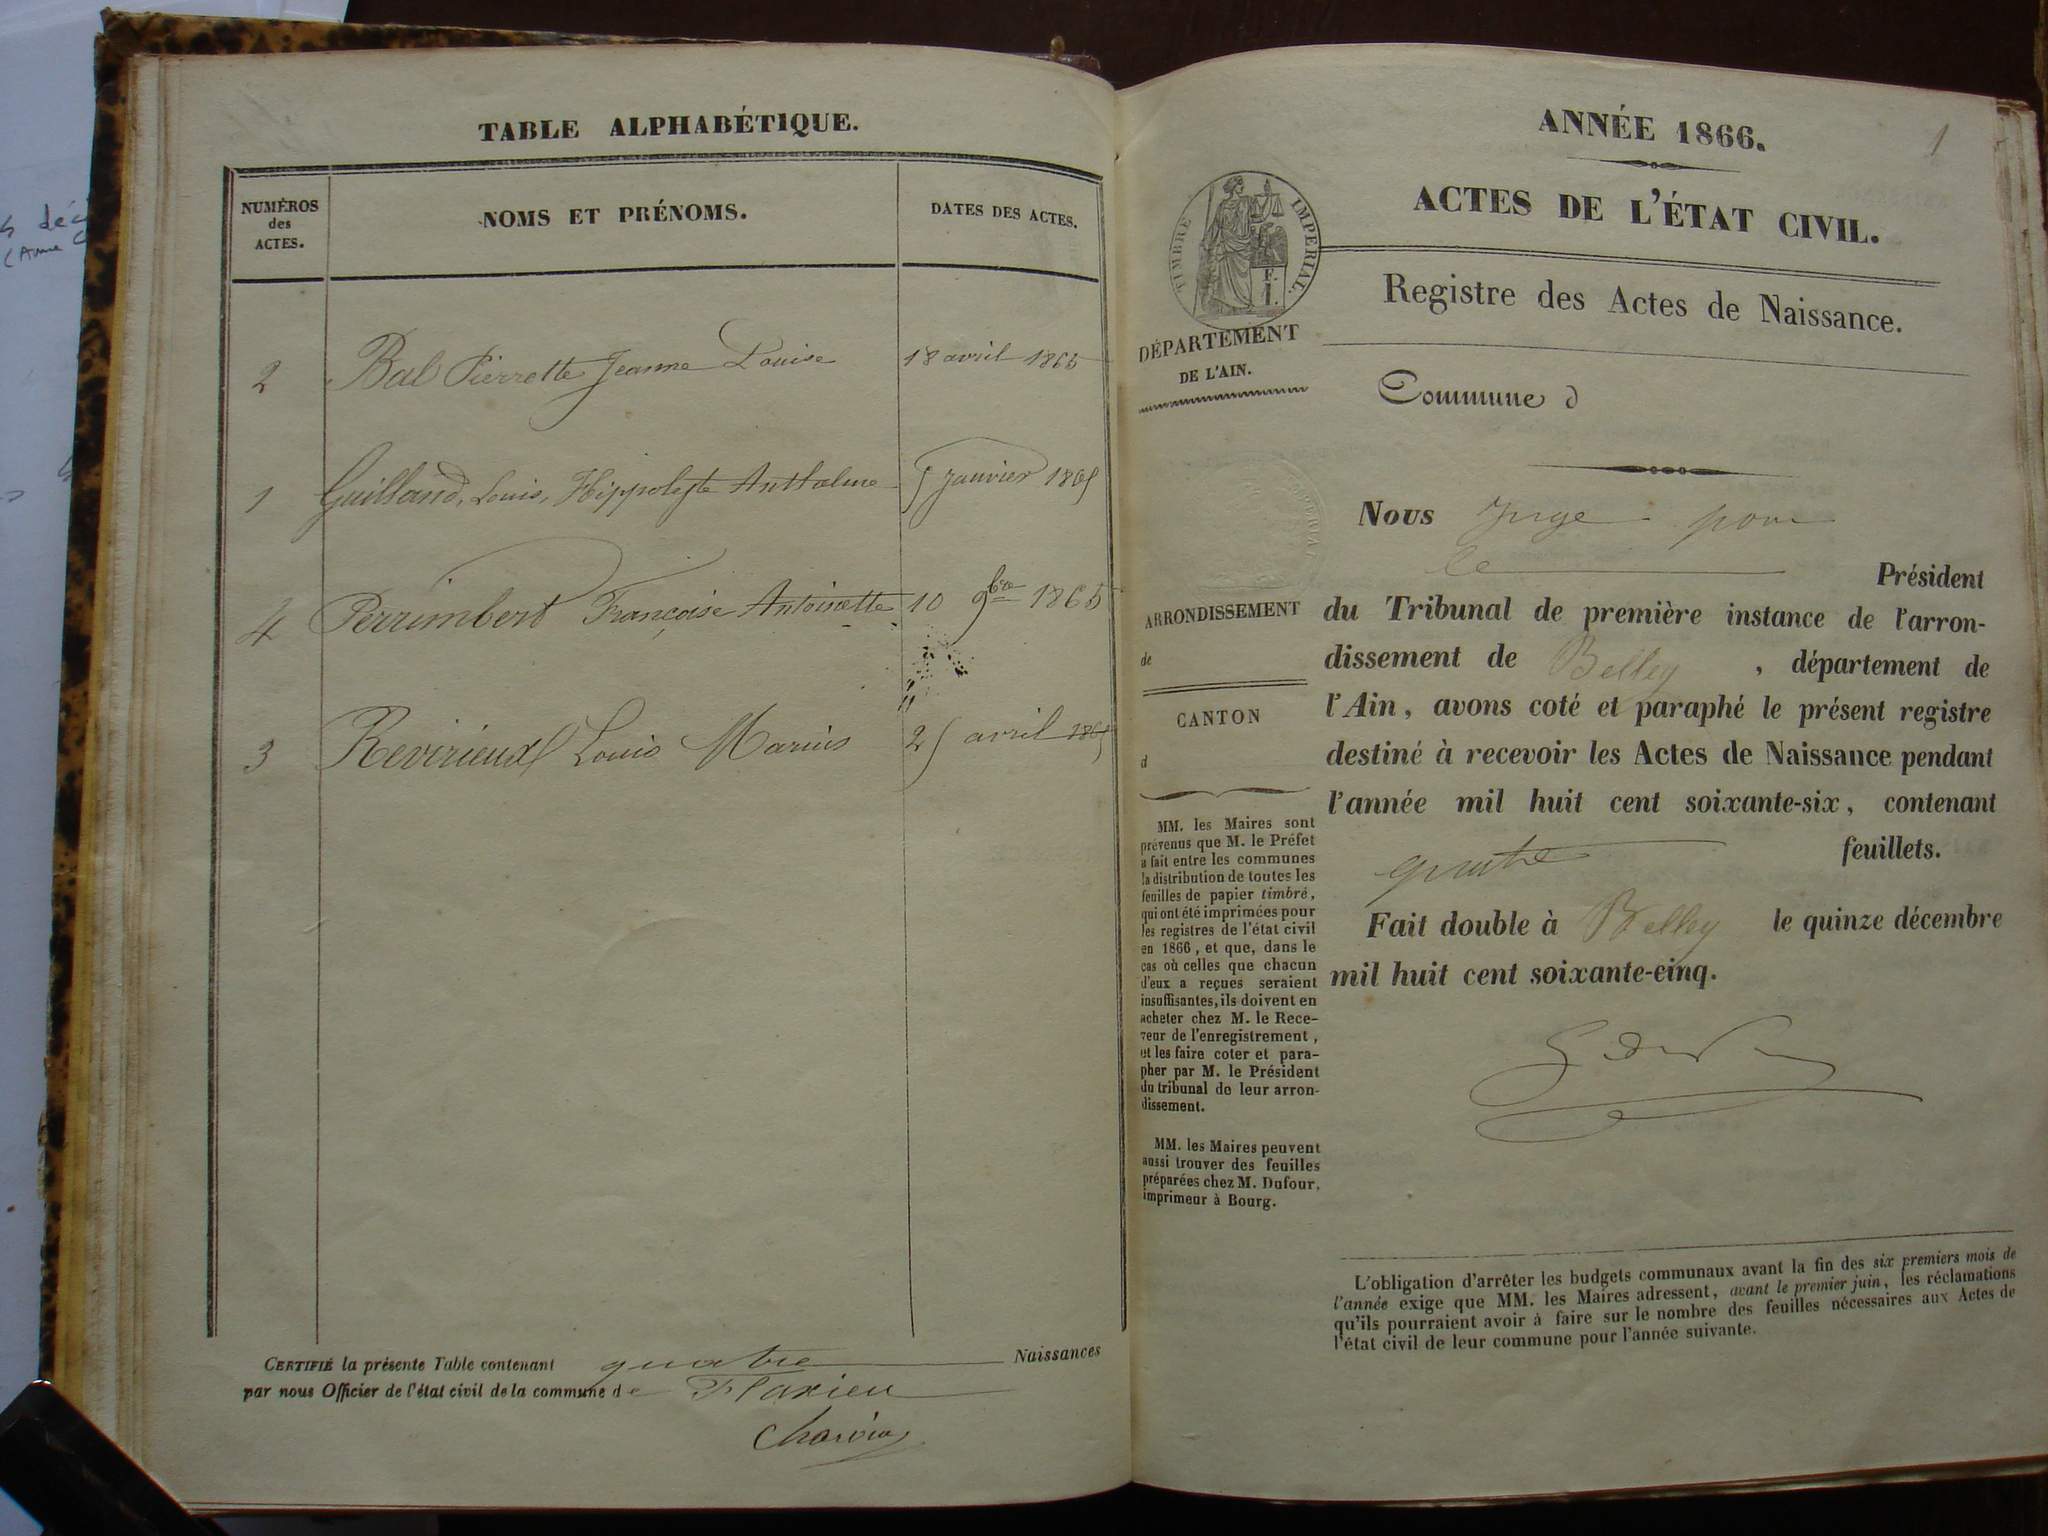 TABLE ALPHABÉTIQUE.
NUMÉROS des ACTES.
NOMS ET PRÉNOMS.
DATES DES ACTES.
2 Bal Pierrette Jeanne Louise 18 avril 1865
1 Guilland, Louis, Hippolyte Anthelme 5 Janvier 1865
4 Perrimbert Françoise Antoinette 10 9bre 1865
3 Revirieux Louis Marius 25 avril 1865
CERTIFIÉ la présente Table contenant quatre Naissances
par nous Officier de l'état civil de la commune de Flaxieu
1
ANNÉE 1866.
ACTES DE L'ÉTAT CIVIL.
TIMBRE IMPERIAL.
Registre des Actes de Naissance.
DÉPARTEMENT
DE L'AIN.
Commune d
ARRONDISSEMENT
de
CANTON
d
MM. les Maires sont
prévenus que M. le Préfet
a fait entre les communes
la distribution de toutes les
feuilles de papier timbré,
qui ont été imprimées pour
les registres de l'état civil
en 1866, et que, dans le
cas où celles que chacun
d'eux a reçues seraient
insuffisantes, ils doivent en
acheter chez M. le Rece-
veur de l'enregistrement,
et les faire coter et para-
pher par M. le Président
du tribunal de leur arron-
dissement.
MM. les Maires peuvent
aussi trouver des feuilles
préparées chez M. Dufour,
imprimeur à Bourg.
Nous Juge pour
le Président
du Tribunal de première instance de l'arron-
dissement de Belley, département de
l'Ain, avons coté et paraphé le présent registre
destiné à recevoir les Actes de Naissance pendant
l'année mil huit cent soixante-six, contenant
quatre feuillets.
Fait double à Belley le quinze décembre
mil huit cent soixante-cinq.
L'obligation d'arrêter les budgets communaux avant la fin des six premiers mois de
l'année exige que MM. les Maires adressent, avant le premier juin, les réclamations
qu'ils pourraient avoir à faire sur le nombre des feuilles nécessaires aux Actes de
l'état civil de leur commune pour l'année suivante.